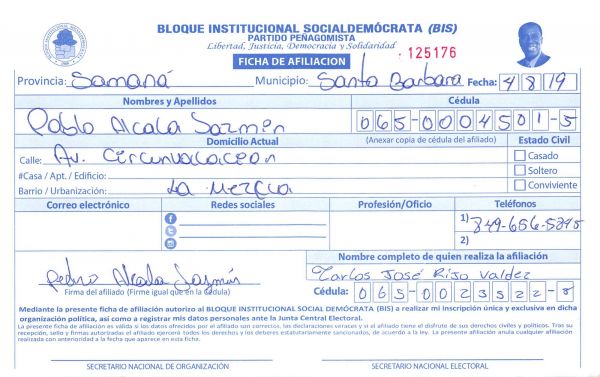 BLOQUE INSTITUCIONAL SOCIALDEMÓCRATA (BIS)
PARTIDO PEÑAGOMISTA
Libertad, Justicia, Democracia y Solidaridad
125176
FICHA DE AFILIACION
Provincia: Samaná Municipio: Santa Barbara Fecha: 4 8 19
Nombres y Apellidos Cédula
Pablo Alcala Jazmin 065-0004501-5
Domicilio Actual (Anexar copia de cédula del afiliado) Estado Civil
Calle: Av. Circunvalacion Casado
#Casa / Apt. / Edificio: Soltero
Barrio / Urbanización: La Mezcla Conviviente
Correo electrónico Redes sociales Profesión/Oficio Teléfonos
1) 849-656-5845
2)
Nombre completo de quien realiza la afiliación
Pedro Alcala Jazmín Carlos José Rijo Valdez
Firma del afiliado (Firme igual que en la Cédula) Cédula: 065-0023522-8
Mediante la presente ficha de afiliación autorizo al BLOQUE INSTITUCIONAL SOCIAL DEMÓCRATA (BIS) a realizar mi inscripción única y exclusiva en dicha
organización política, así como a registrar mis datos personales ante la Junta Central Electoral.
La presente ficha de afiliación es válida si los datos ofrecidos por el afiliado son correctos, las declaraciones veraces y si el afiliado tiene el disfrute de sus derechos civiles y políticos. Tras su
recepción, sello y firmas autorizadas el afiliado ejercerá todos los derechos y los deberes estatutariamente sancionados, de acuerdo a la ley. La presente afiliación anula cualquier afiliación
realizada con anterioridad a la fecha que aparece en esta ficha.
SECRETARIO NACIONAL DE ORGANIZACIÓN SECRETARIO NACIONAL ELECTORAL